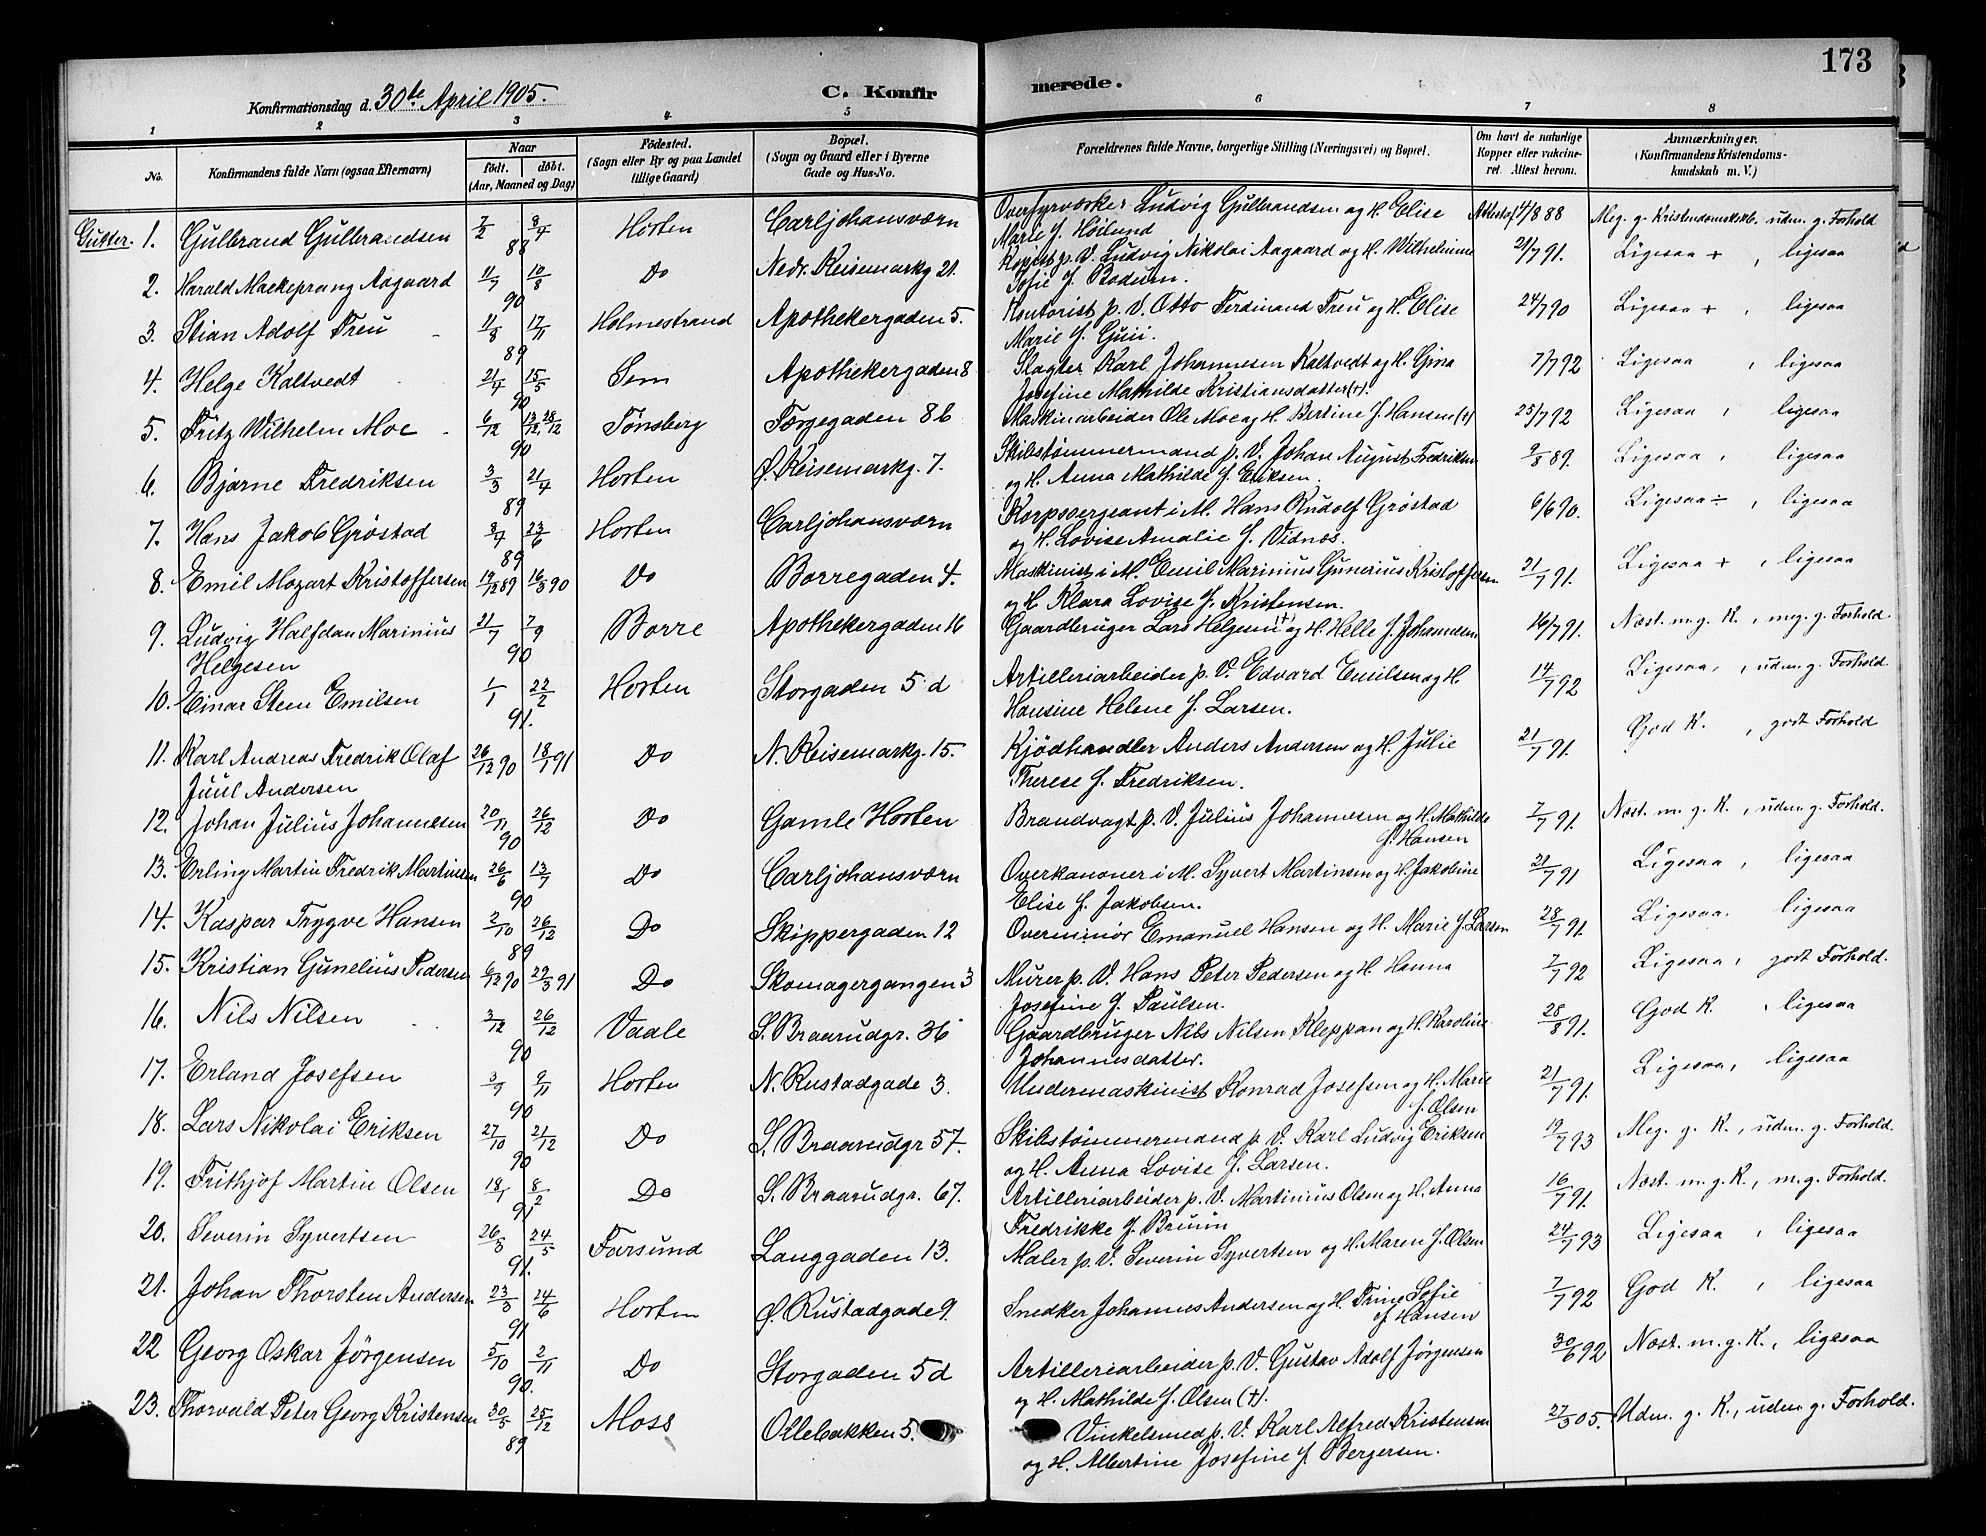 173
Konfirmationsdag d. 30te April 1905. C. Konfirmerede.
1 2 3 4 5 6 7 8
No. Konfirmandens fulde Navn (ogsaa Efternavn) Naar født. døbt. (Aar, Maaned og Dag) Fødested. (Sogn eller By og paa Landet tillige Gaard) Bopæl. (Sogn og Gaard eller i Byerne Gade og Hus-No. Forældrenes fulde Navne, borgerlige Stilling (Næringsvei) og Bopæl. Om havt de naturlige Kopper eller vakcineret. Attest herom. Anmærkninger. (Konfirmandens Kristendomskundskab m. V.)
Gutter. 1. Gulbrand Gulbrandsen 7/2 8/4 88 Horten Carljohansværn Overfyrværker Ludvig Gulbrandsen og H. Elise Marie f. Höilund Attest af 17/8 88 Meg. g. Kristendomskdsk. udm. g. Forhold
2. Harald Mackeprang Aagaard 11/7 10/8 90 Do Nedr. Keisemarkg 21. Kopist p. V. Ludvig Nikolai Aagaard og H. Wilhelmine Sofie f. Bodum. 21/7 91. Ligesaa + , ligesaa
3. Stian Adolf Treu 11/8 17/11 89 Holmestrand Apothekergaden 5. Kontorist p. V. Otto Ferdinand Treu og H. Elise Marie f. 24/7 90 Ligesaa + , ligesaa
4. Helge Kaltvedt 21/4 15/5 90 Sem Apothekergaden 8 Slagter Karl Johannesen Kaltvedt og H. Gina Josefine Mathilde Kristiansdatter (+). 7/7 92 Ligesaa , ligesaa
5. Fritz Wilhelm Moe 6/12 13/12 28/12 90 Tønsberg Torgegaden 8b Maskinarbeider Ole Moe og H. Bertine f. Hansen (+) 25/7 92 Ligesaa , ligesaa
6. Bjarne Fredriksen 3/3 21/4 89 Horten Ø. Keisemarkg. 7. Skibstømmermand p. V. Johan August Fredriksen og H. Anna Mathilde f. Eriksen. 9/8 89. Ligesaa , ligesaa
7. Hans Jakob Grøstad 3/4 23/6 89 Horten Carljohansværn Korpssergeant i M. Hans Rudolf Grøstad og H. Lovise Amalie f. Vidnes. 6/6 90. Ligesaa ÷ , ligesaa
8. Emil Mozart Kristoffersen 19/12 89 16/3 90 Do Borregaden 4. Maskinist i M. Emil Marinius Gunerius Kristoffersen og H Klara Lovise f. Kristensen. 21/7 91. Ligesaa + , ligesaa
9. Ludvig Halfdan Marinius Helgesen 21/7 7/9 90 Borre Apothekergaden 16 Gaardbruger Lars Helgesen (+) og H. Helle f. Johansen 16/7 91. Næst. m. g. K. , meg. g. Forhold.
10. Einar Steen Emilsen 1/1 22/2 91. Horten Storgaden 5 d Artilleriarbeider p. V. Edvard Emilsen og H Hansine Helene f. Larsen. 14/7 92 Ligesaa , udm. g. Forhold.
11. Karl Andreas Fredrik Olaf Juul Andersen 26/12 90 18/1 91 Do N. Keisemarkg. 15. Kjödhandler Anders Andersen og H. Julie Therese f. Fredriksen. 21/7 91. God K. , godt Forhold
12. Johan Julius Johannesen 20/11 26/12 90 Do Gamle Horten Brandvagt p. V. Julius Johannesen og H. Mathilde f. Hansen 7/7 91. Næst. m. g. K. , udm. g. Forhold.
13. Erling Martin Fredrik Martinsen 26/6 13/7 90 Do Carljohansværn Overkanoner i M. Syvert Martinsen og H. Jakobine Elise f. Jakobsen. 21/7 91 Ligesaa , ligesaa
14. Kaspar Trygve Hansen 2/10 26/12 89 Do Skippergaden 12 Overminør Emanuel Hansen og H. Marie f. Larsen 28/7 91. Ligesaa. ligesaa
15. Kristian Gunelius Pedersen 6/12 90 29/3 91 Do Skomagergangen 3 Murer p. V. Hans Peter Pedersen og H. Hanna Josefine f. Paulsen. 7/7 92 Ligesaa , godt Forhold.
16. Nils Nilsen 3/12 26/12 90 Vaale S. Braarudgr. 36 Gaardbruger Nils Nilsen Kleppan og H. Karoline Johannesdatter. 28/8 91. God K. , ligesaa
17. Erland Josefsen 3/9 9/11 90 Horten N. Rustadgade 3. Undermaskinist Konrad Josefsen og H. Marie f. Olsen 21/7 91. Ligesaa, ligesaa
18. Lars Nikolai Eriksen 27/10 21/12 90 Do S. Braarudgr 57. Skibstømmermand p. V. Karl Ludvig Eriksen og H. Anna Lovise f. Larsen. 19/7 93 Meg. g. K. , udm. g. Forhold.
19. Frithjof Martin Olsen 18/1 8/2 91 Do S. Braarudgr. 67. Artilleriarbeider p. V. Martinius Olsen og H. Anna Fredrikke f. Bruun 16/7 91. Næst. m. g. K. , m. g. Forhold.
20. Severin Syvertsen 26/3 24/5 91. Farsund Langgaden 13. Maler p. V. Severin Syvertsen og H. Maren f. Olsen 24/7 93 Ligesaa , ligesaa
21. Johan Thorsten Andersen 23/3 24/6 91 Horten Ø. Rustadgade 9. Snedker Johannes Andersen og H. Trine Sofie f. Hansen 7/7 92 God K. , ligesaa
22 Georg Oskar Jörgensen 5/10 2/11 90. Do Storgaden 5 d Artilleriarbeider p. V. Gustav Adolf Jörgensen og H. Mathilde f. Olsen (+). 30/6 92 Næst. m. g. K. , ligesaa
23. Thorvald Peter Georg Kristensen 30/5 25/12 89 Moss Ollebakken 5. Vinkelsmed p. V. Karl Alfred Kristensen og H. Albertine Josefine f. Bergersen. 27/3 05. Udm. g. K. , udm. g. Forhold.